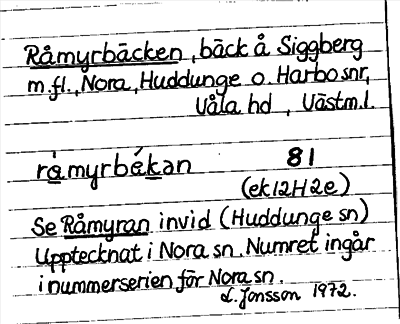 Råmyrbäcken, bäck å Siggberg
m.fl., Nora, Huddunge o. Harbo snr,
Våla hd, Västm.l.
rå̀myrbékan 81
(ek.12H2e)
Se Råmyran invid (Huddunge sn)
Upptecknat i Nora sn. Numret ingår
i nummerserien för Nora sn.
L. Jonsson 1972.